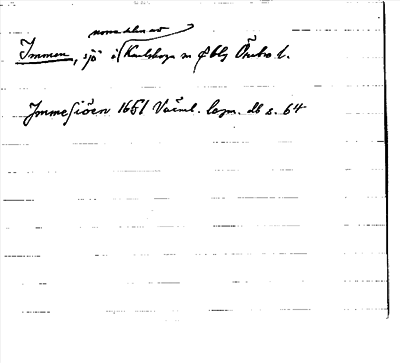 norra delen av
Immen, sjö i Karlskoga sn Öblg Örebro l.
Immesiöen 1651 Värml. lagm. db s. 64